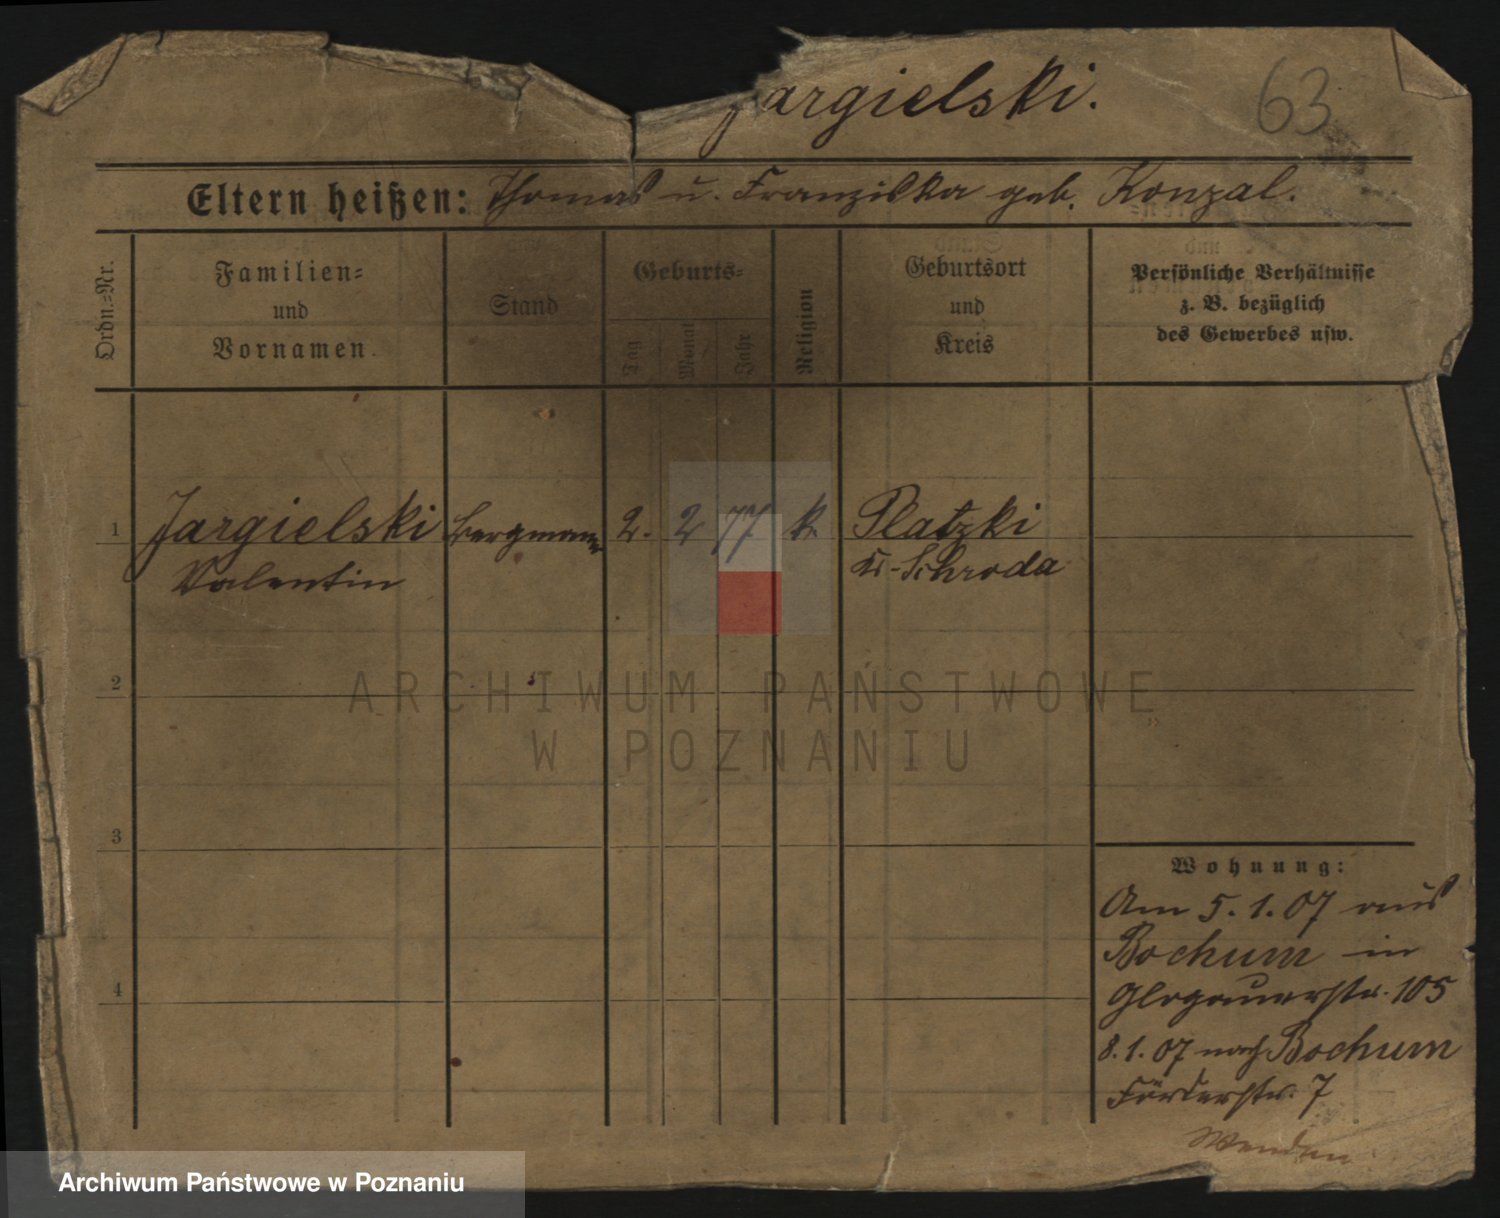 Jargielski.
63
Eltern heißen: Thomas u. Franziska geb. Konzal.
Ordn.=Nr.
Familien=
und
Vornamen.
Stand
Geburts=
Tag
Monat
Jahr
Religion
Geburtsort
und
Kreis
Persönliche Verhältnisse
z. B. bezüglich
des Gewerbes usw.
1 Jargielski Bergmann 2. 2 77 k. Platzki
Valentin Kr. Schroda
2
ARCHIWUM PAŃSTWOWE
W POZNANIU
3
4
Wohnung:
Am 5.1.07 aus
Bochum in
Glogauerstr. 105
8.1.07 nach Bochum
Förderstr. 7
Wenden
Archiwum Państwowe w Poznaniu